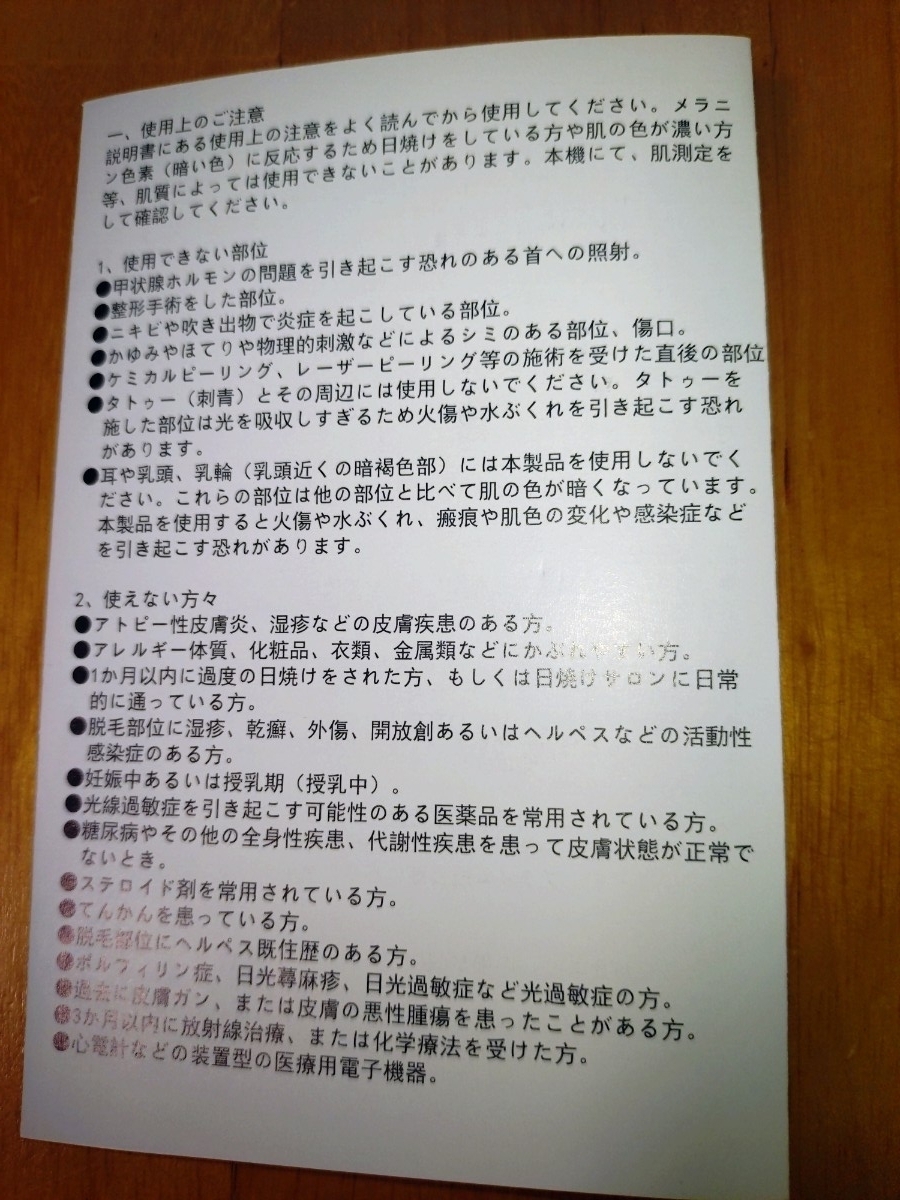 一、使用上のご注意
説明書にある使用上の注意をよく読んでから使用してください。メラニ
ン色素（暗い色）に反応するため日焼けをしている方や肌の色が濃い方
等、肌質によっては使用できないことがあります。本機にて、肌測定を
して確認してください。
1、使用できない部位
●甲状腺ホルモンの問題を引き起こす恐れのある首への照射。
●整形手術をした部位。
●ニキビや吹き出物で炎症を起こしている部位。
●かゆみやほてりや物理的刺激などによるシミのある部位、傷口。
●ケミカルピーリング、レーザーピーリング等の施術を受けた直後の部位
●タトゥー（刺青）とその周辺には使用しないでください。タトゥーを
施した部位は光を吸収しすぎるため火傷や水ぶくれを引き起こす恐れ
があります。
●耳や乳頭、乳輪（乳頭近くの暗褐色部）には本製品を使用しないでく
ださい。これらの部位は他の部位と比べて肌の色が暗くなっています。
本製品を使用すると火傷や水ぶくれ、瘢痕や肌色の変化や感染症など
を引き起こす恐れがあります。
2、使えない方々
●アトピー性皮膚炎、湿疹などの皮膚疾患のある方。
●アレルギー体質、化粧品、衣類、金属類などにかぶれやすい方。
●1か月以内に過度の日焼けをされた方、もしくは日焼けサロンに日常
的に通っている方。
●脱毛部位に湿疹、乾癬、外傷、開放創あるいはヘルペスなどの活動性
感染症のある方。
●妊娠中あるいは授乳期（授乳中）。
●光線過敏症を引き起こす可能性のある医薬品を常用されている方。
●糖尿病やその他の全身性疾患、代謝性疾患を患って皮膚状態が正常で
ないとき。
●ステロイド剤を常用されている方。
●てんかんを患っている方。
●脱毛部位にヘルペス既住歴のある方。
●ポルフィリン症、日光蕁麻疹、日光過敏症など光過敏症の方。
●過去に皮膚ガン、または皮膚の悪性腫瘍を患ったことがある方。
●3か月以内に放射線治療、または化学療法を受けた方。
●心電計などの装置型の医療用電子機器。